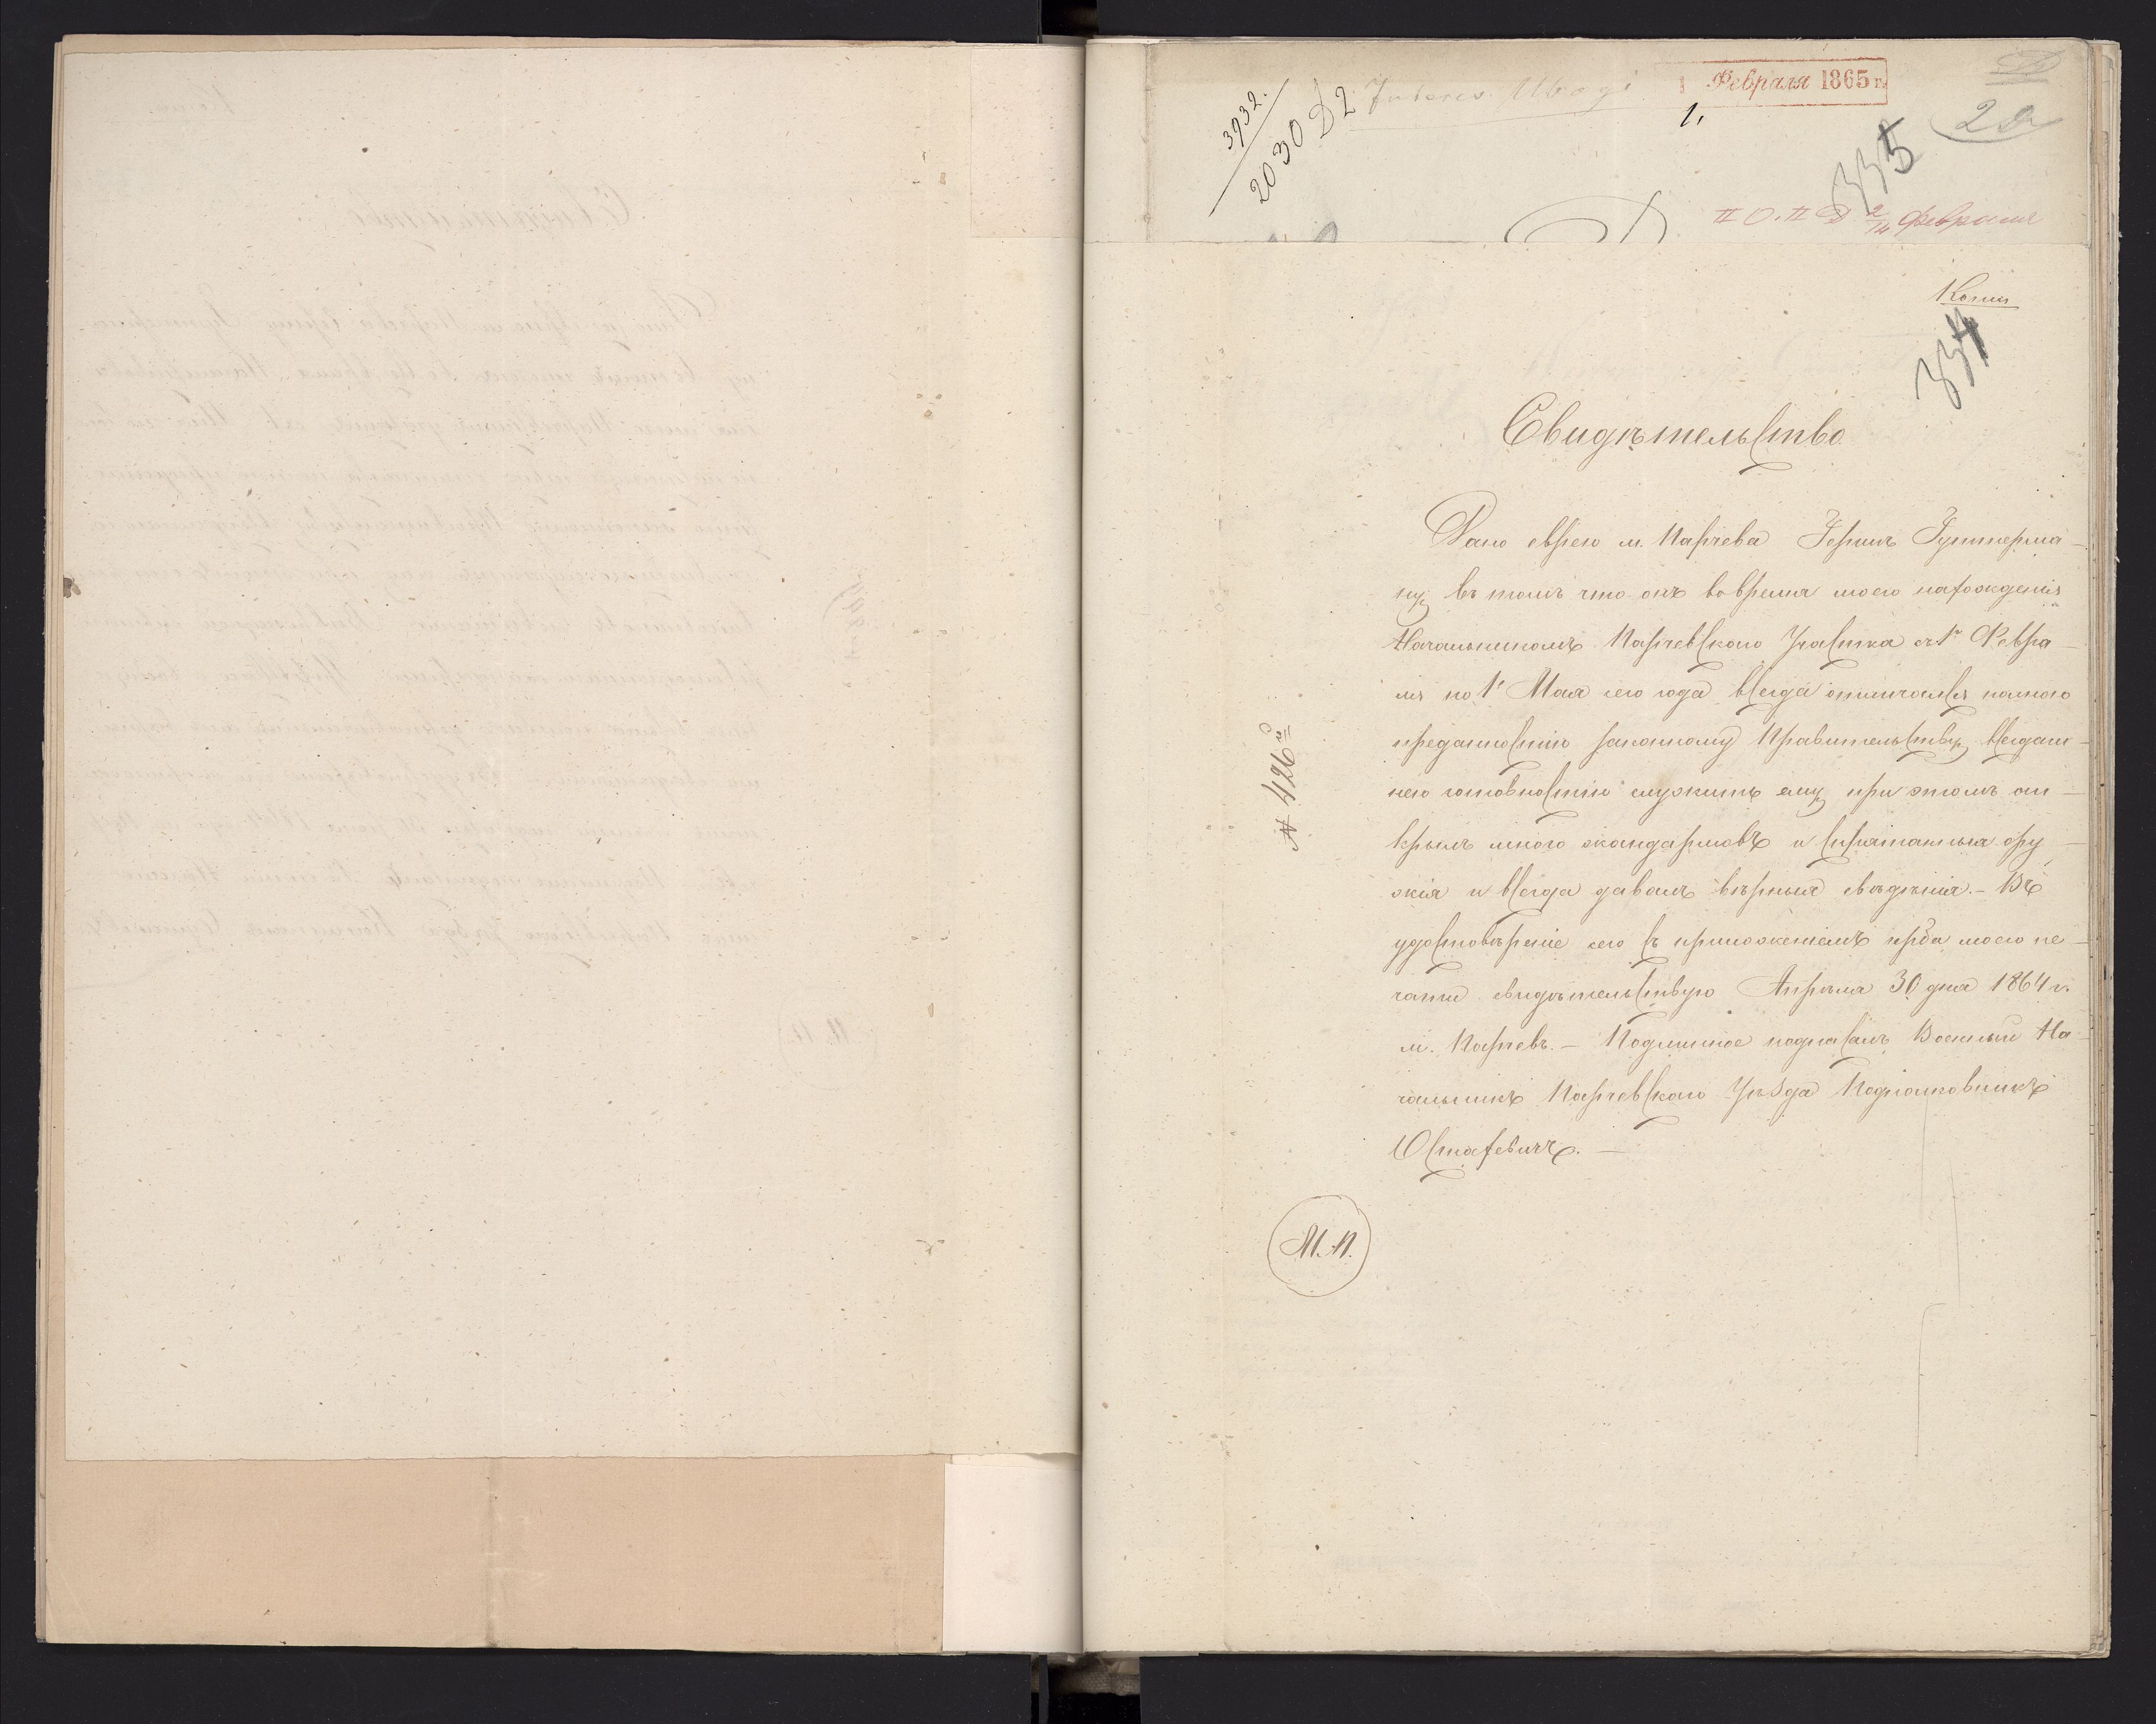 3932.
2030 D2
1 Февраля 1865 г.
1,
335
II О. II Д 2/14 Февраля
Копия
334
Свидѣтельство
Дано еврею м. Парчева Гершъ Гуттерма-
ну, въ томъ что онъ во время моего нахожденія
Начальникомъ Парчевскаго Участка съ 1го Февра-
ля по 1е Мая сего года, всегда отличался полною
преданностію законному Правительству, всегдаш-
нею готовностію служить ему, при этомъ от-
крылъ много жандармовъ и спрятанныя ору-
жія и всегда давалъ вѣрныя свѣдѣнія. - Въ
удостовѣреніе сего съ приложеніемъ герба моего пе-
чати свидѣтельствую Апрѣля 30 дня 1864 г.
м. Парчевъ. - Подлинное подписалъ Военный На-
чальникъ Парчевскаго Уѣзда Подполковникъ
Остафевичъ. -
№ 426й
М.П.